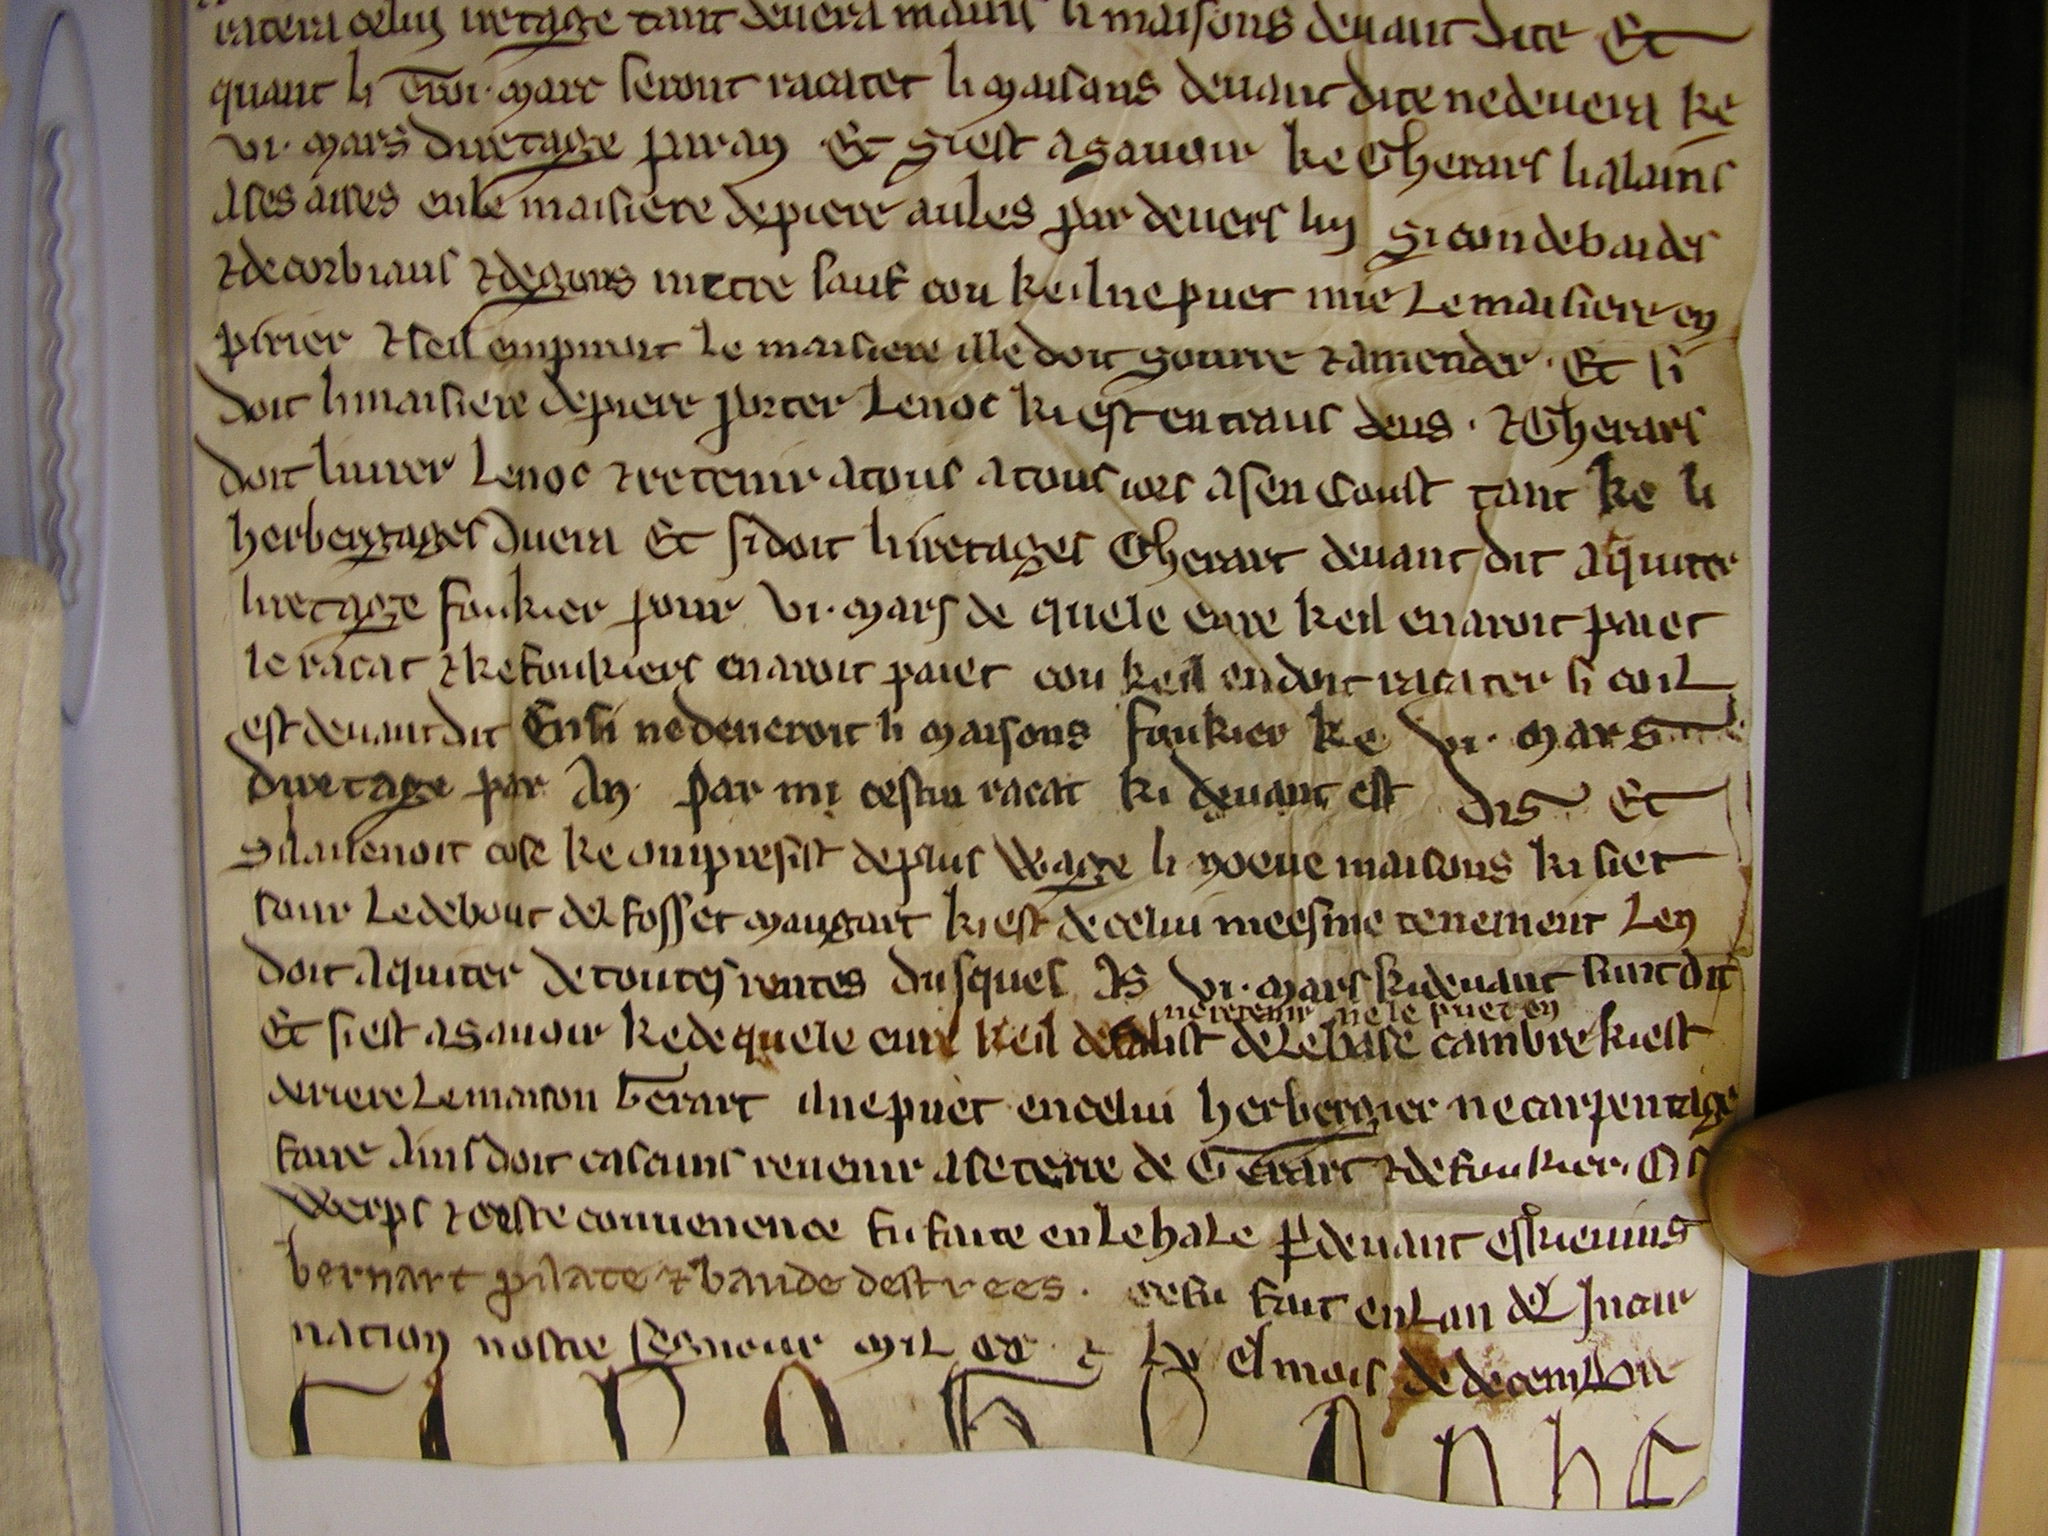 racera celui iretage tant devera mains li maisons devant dite Et
quant li troi · marc seront racatet li maisons devant dite ne devera ke
vi · mars diretage par an Et si est asavoir ke Gherars li alains
a ses aises en le maisiere de piere aules par devers lui si con de baides
⁊ de corbiaus ⁊ de gons metre sauf cou ke il ne puet mie le maisiere en
pirier ⁊ se il empiroit le maisiere il le doit sourre ⁊ amender · Et si
doit li maisiere de piere porter le noc ki est entraus deus · ⁊ Gherars
doit livrer le noc ⁊ retenir a tous a tous iors a sen coust tant ke li
herbergages duera Et si doit li iretages Gherart devant dit aquiter
liretage foukier pour vi · mars de quele eure ke il en aroit paiet
le racat ⁊ ke foukiers en aroit paiet cou ke il en doit racater si con
est devant dit Ensi ne deveroit li maisons foukier ke vi · mars
diretage par an · par mi cestui racat ki devant est dis Et
sil avenoit cose ke on presist de plus wage li noeve maisons ki siet
sour le debout del fosset maugart ki est de celui meesme tenement len
doit aquiter de toutes rentes dusques as vi · mars ki devant sunt dit
ne retenir ne le puet en
Et si est asavoir ke de quele eure ke il defalist de le base cambre ki est
deriere le maison Gerart il ne puet en celui herbergier ne carpentage
faire ains doit cascuns revenir a se terre de Gerart ⁊ de foukier · Cis
werps ⁊ ceste convenence fu faite en le hale p devant eskievins
bernart pilate ⁊ baude destrees · ce fu fait en lan del Incar
nation nostre segneur mil cc · ⁊ lv el mois de decembre